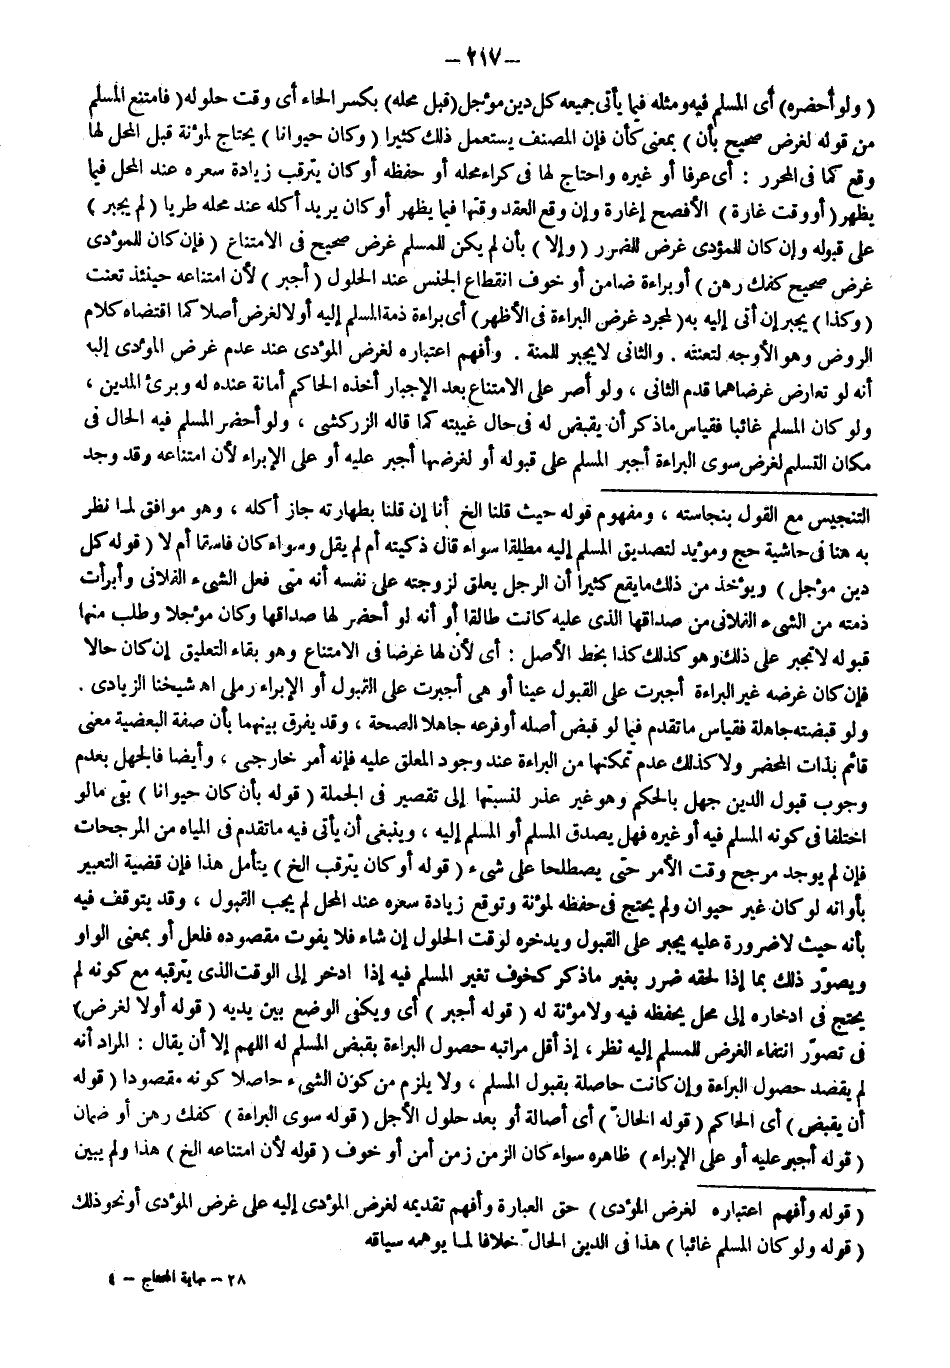 - ٢١٧ -
( ولو أحضره) أى المسلم فيه ومثله فيما يأتى جميعه كل دين مؤجل (قبل محله) بكسر الحاء أى وقت حلوله ( فامتنع المسلم
من قوله لغرض صحيح بأن ) بمعنى كأن فإن المصنف يستعمل ذلك كثيرا ( وكان حيوانا ) يحتاج لمؤنة قبل المحل لها
وقع كما فى المحرر : أى عرفا أو غيره واحتاج لها فى كراء محله أو حفظه أو كان يترقب زيادة سعره عند المحل فيما
يظهر ( أو وقت غارة ) الأفصح إغارة وإن وقع العقد وقتها فيما يظهر أو كان يريد أكله عند محله طريا ( لم يجبر )
على قبوله وإن كان للمؤدى غرض للضرر ( وإلا ) بأن لم يكن للمسلم غرض صحيح فى الامتناع ( فإن كان للمؤدى
غرض صحيح كفك رهن ) أو براءة ضامن أو خوف انقطاع الجنس عند الحلول ( أجبر ) لأن امتناعه حينئذ تعنت
( وكذا ) يجبر إن أتى إليه به ( لمجرد غرض البراءة فى الأظهر ) أى براءة ذمة المسلم إليه أولا لغرض أصلا كما اقتضاه كلام
الروض وهو الأوجه لتعنته . والثانى لا يجبر للمنة . وأفهم اعتباره لغرض المؤدى عند عدم غرض المؤدى إليه
أنه لو تعارض غرضاهما قدم الثانى ، ولو أصر على الامتناع بعد الإجبار أخذه الحاكم أمانة عنده له وبرئ المدين ،
ولو كان المسلم غائبا فقياس ماذكر أن يقبض له فى حال غيبته كما قاله الزركشى ، ولو أحضر المسلم فيه الحال فى
مكان التسليم لغرض سوى البراءة أجبر المسلم على قبوله أو لغرضها أجبر عليه أو على الإبراء لأن امتناعه وقد وجد
التنجيس مع القول بنجاسته ، ومفهوم قوله حيث قلنا الخ أنا إن قلنا بطهارته جاز أكله ، وهو موافق لما نظر
به هنا فى حاشية حج ومؤيد لتصديق المسلم إليه مطلقا سواء قال ذكيته أم لم يقل وسواء كان فاسقا أم لا ( قوله كل
دين مؤجل ) ويؤخذ من ذلك مايقع كثيرا أن الرجل يعلق لزوجته على نفسه أنه متى فعل الشىء الفلانى وأبرأت
ذمته من الشىء الفلانى من صداقها الذى عليه كانت طالقا أو أنه لو أحضر لها صداقها وكان مؤجلا وطلب منها
قبوله لاتجبر على ذلك وهو كذلك كذا بخط الأصل : أى لأن لها غرضا فى الامتناع وهو بقاء التعليق إن كان حالا
فإن كان غرضه غير البراءة أجبرت على القبول عينا أو هى أجبرت على القبول أو الإبراء رملى اه شيخنا الزيادى .
ولو قبضته جاهلة فقياس ماتقدم فيما لو قبض أصله أو فرعه جاهلا الصحة ، وقد يفرق بينهما بأن صفة البعضية معنى
قائم بذات المحضر ولا كذلك عدم تمكنها من البراءة عند وجود المعلق عليه فإنه أمر خارجى ، وأيضا فالجهل بعدم
وجوب قبول الدين جهل بالحكم وهو غير عذر لنسبتها إلى تقصير فى الجملة ( قوله بأن كان حيوانا ) بقى مالو
اختلفا فى كونه المسلم فيه أو غيره فهل يصدق المسلم أو المسلم إليه ، وينبغى أن يأتى فيه ماتقدم فى المياه من المرجحات
فإن لم يوجد مرجح وقت الأمر حتى يصطلحا على شىء ( قوله أو كان يترقب الخ ) يتأمل هذا فإن قضية التعبير
بأو أنه لو كان غير حيوان ولم يحتج فى حفظه لمؤنة وتوقع زيادة سعره عند المحل لم يجب القبول ، وقد يتوقف فيه
بأنه حيث لا ضرورة عليه يجبر على القبول ويدخره لوقت الحلول إن شاء فلا يفوت مقصوده فلعل أو بمعنى الواو
ويصوّر ذلك بما إذا لحقه ضرر بغير ماذكر كخوف تغير المسلم فيه إذا ادخر إلى الوقت الذى يترقبه مع كونه لم
يحتج فى ادخاره إلى محل يحفظه فيه ولا مؤنة له ( قوله أجبر ) أى ويكفى الوضع بين يديه ( قوله أولا لغرض )
فى تصوّر انتفاء الغرض للمسلم إليه نظر ، إذ أقل مراتبه حصول البراءة بقبض المسلم له اللهم إلا أن يقال : المراد أنه
لم يقصد حصول البراءة وإن كانت حاصلة بقبول المسلم ، ولا يلزم من كون الشىء حاصلا كونه مقصودا ( قوله
أن يقبض ) أى الحاكم ( قوله الحالّ ) أى أصالة أو بعد حلول الأجل ( قوله سوى البراءة ) كفك رهن أو ضمان
( قوله أجبر عليه أو على الإبراء ) ظاهره سواء كان الزمن زمن أمن أو خوف ( قوله لأن امتناعه الخ ) هذا ولم يبين
( قوله وأفهم اعتباره لغرض المؤدى ) حق العبارة وأفهم تقديمه لغرض المؤدى إليه على غرض المؤدى أو نحو ذلك
( قوله ولو كان المسلم غائبا ) هذا فى الدين الحالّ خلافا لما يوهمه سياقه
٢٨ - نهاية المحتاج - ٤